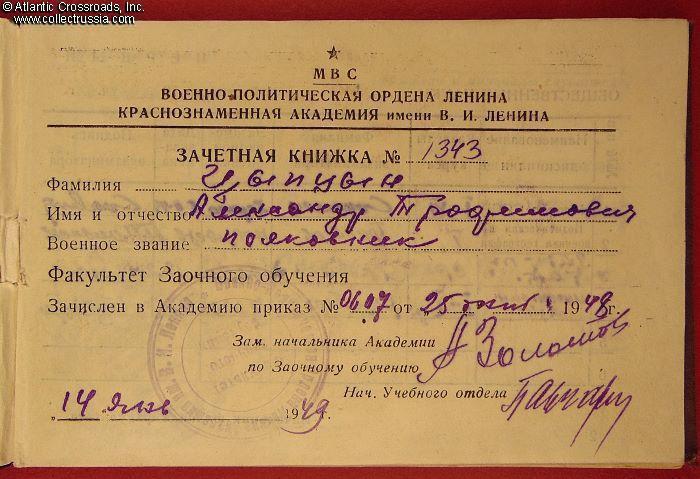 © Atlantic Crossroads, Inc.
www.collectrussia.com
МВС
ВОЕННО-ПОЛИТИЧЕСКАЯ ОРДЕНА ЛЕНИНА
КРАСНОЗНАМЕННАЯ АКАДЕМИЯ имени В. И. ЛЕНИНА
ЗАЧЕТНАЯ КНИЖКА № 1343
Фамилия Цыпцын
Имя и отчество Александр Трофимович
Военное звание полковник
Факультет Заочного обучения
Зачислен в Академию приказ № 0607 от 25 1948г.
Зам. начальника Академии
по Заочному обучению А Золотов
Нач. Учебного отдела
14 янв 1949г.